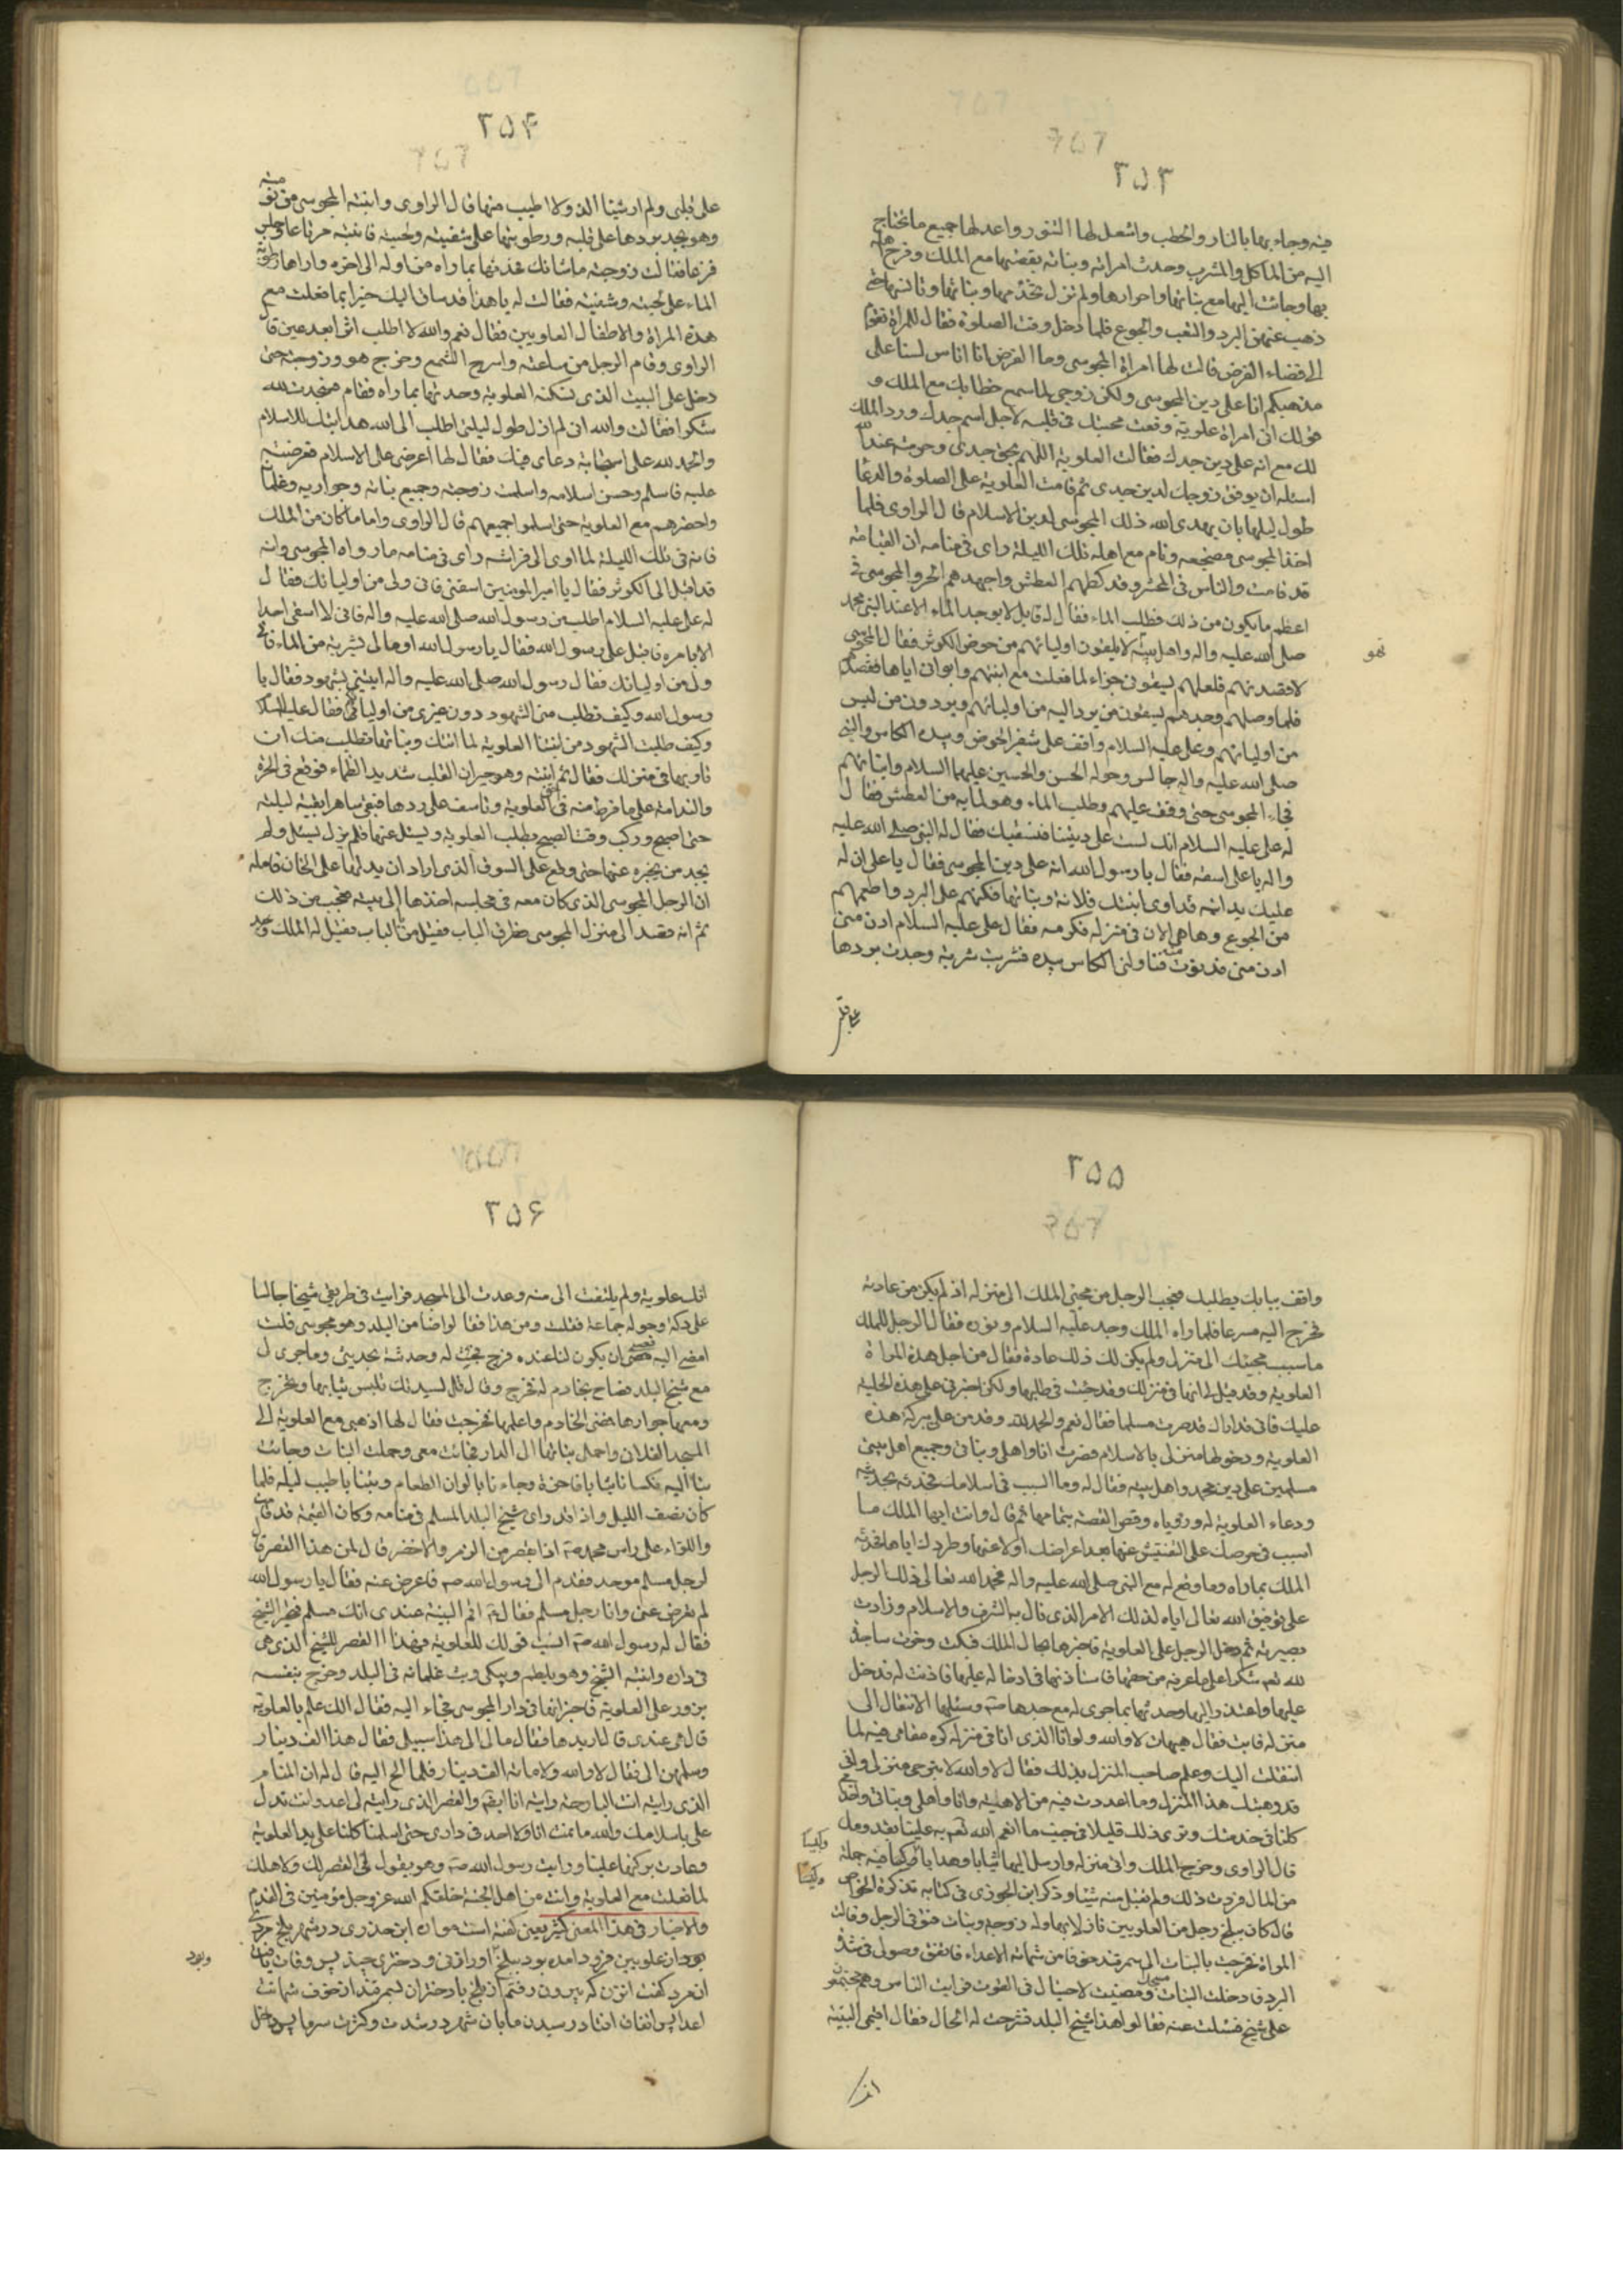 ۲۵۳
فيه وجاء بها بالنار والحطب واشعل لها التنور واعد لها جميع ما تحتاج
اليه من الماكل والمشرب وحدث امراته وبناته بقصتها مع الملك وفرح اهله
بها وجائت اليها مع بناتها واحوارها ولم تزل تخدمها وبناتها وتانسها حتى
ذهب عنهن البرد والتعب والجوع فلما دخل وقت الصلوة فقال للمراة نقوم
الى قضاء الفرض قالت لها امراة المجوسى وما الفرض انا اناس لسنا على
مذهبكم انا على دين المجوسى ولكن زوجى لما سمع خطابك مع الملك و
قولك انى امراة علوية وقعت محبتك فى قلبه لاجل اسم جدك ورد الملك
لك مع انه على دين جدك فقالت العلوية اللهم بحق جدى وحرمته عند الله
اسئله ان يوفق زوجك لدين جدى ثم قامت العلوية على الصلوة والدعا
طول ليلها بان يهدى الله ذلك المجوسى لدين الاسلام قال الراوى فلما
اخذ المجوسى مضجعه ونام مع اهله تلك الليلة راى فى منامه ان القيامة
قد قامت والناس فى المحشر وقد كظهم العطش واجهدهم الحر والمجوسى فى
اعظم ما يكون من ذلك فطلب الماء فقال له قايل لا يوجد الماء الا عند النبى محمد
صلى الله عليه واله واهل بيته لا يسقون اوليائهم من حوض الكوثر فقال المجوسى
لاقصدنهم فلعلهم يسقونى جزاء لما فعلت مع ابنتهم وايوائى اياها فقصدهم
فلما وصلهم وجدهم يسقون من يرد اليه من اوليائهم ويردون من ليس
من اوليائهم وعلى عليه السلام واقف على شفير الحوض وبيده الكاس والنبى
صلى الله عليه واله جالس وحوله الحسن والحسين عليهما السلام وابنائهم
فجاء المجوسى حتى وقف عليهم وطلب الماء وهو لما به من العطش فقال
له على عليه السلام انك لست على ديننا فنسقيك فقال له النبى صلى الله عليه
واله يا على اسقه فقال يا رسول الله انه على دين المجوسى فقال يا على ان له
عليك يدا انه قد اوى ابنتك فلانة وبناتها فكنهم على البرد واطعمهم
من الجوع وها هى الان فى منزله فكرمه فقال على عليه السلام ادن منى
ادن منى فدنوت منه فناولنى الكاس بيده فشربت شربة وجدت بردها
على قلبى
۲۵۴
على قلبى ولم ار شيئا الذ ولا اطيب منها قال الراوى وانتبه المجوسى من نومته
وهو يجد بردها على قلبه ورطوبتها على شفتيه ولحيته فانتبه
فزعا فقالت زوجته ما شانك فحدثها بما راه من اوله الى اخره واراها رطوبة
الماء على لحيته وشفتيه فقالت له يا هذا قد ساق اليك خيرا بما فعلت مع
هذه المراة والاطفال العلويين فقال نعم والله لا اطلب اثرا بعد عين قال
الراوى وقام الرجل من ساعته واسرج الشمع وخرج هو وزوجته حتى
دخل على البيت الذى تسكنه العلوية وحدثها بما راه فقام فسجدت لله
شكرا فقالت والله انى لم ازل طول ليلتى اطلب الى الله هدايتك للاسلام
والحمد لله على استجابة دعاى فيك فقال لها اعرضى على الاسلام فعرضته
عليه فاسلم وحسن اسلامه واسلمت زوجته وجميع بناته وجواريه وغلمانه
واحضرهم مع العلوية حتى اسلموا جميعهم قال الراوى واما ما كان من الملك
فانه فى تلك الليلة لما اوى الى فراشه راى فى منامه ما راه المجوسى وانه
قد اقبل الى الكوثر فقال يا امير المومنين اسقنى فانى ولى من اوليائك فقال
له على عليه السلام اطلب من رسول الله صلى الله عليه واله فانى لا اسقى احدا
الا بامره فاقبل على رسول الله فقال يا رسول الله اومر لى بشربة من الماء فانى
ولى من اوليائك فقال رسول الله صلى الله عليه واله ايتنى بشهود فقال يا
رسول الله وكيف تطلب منى الشهود دون غيرى من اوليائكم فقال عليه السلام
وكيف طلبت الشهود من ابنتنا العلوية لما اتتك وبناتها تطلب منك ان
تاويها فى منزلك فقال ثم انتبه وهو حيران القلب شديد الظماء فوقع فى الحزن
والندامة على ما فرط منه فى حق العلوية وتاسف على ردها فبقى ساهرا بقية ليلته
حتى اصبح وركب وقت الصبح يطلب العلوية ويسئل عنها فلم يزل يسئل ولم
يجد من يخبره عنها حتى وقع على السوقى الذى اراد ان يدلها على الخان فاعلمه
ان الرجل المجوسى الذى كان معه فى مجلسه اخذها الى بيته فعجب من ذلك
ثم انه قصد الى منزل المجوسى وطرق الباب فقيل من بالباب فقيل له الملك
نحو
۲۵۵
واقف ببابك يطلبك فعجب الرجل من مجئ الملك الى منزله اذ لم يكن من عادته
فخرج اليه مسرعا فلما راه الملك وجد عليه السلام ونوره فقال الرجل للملك
ما سبب مجيئك الى منزلى ولم يكن لك ذلك عادة فقال من اجل هذه المراة
العلوية وقد قيل لى انها فى منزلك وقد جئت فى طلبها ولكن اخبرنى على هذه الحلية
عليك فانى قد اراك قد صرت مسلما فقال نعم والحمد لله وقد من على ببركة هذه
العلوية ودخولها منزلى بالاسلام فصرت انا واهلى وبناتى وجميع اهل بيتى
مسلمين على دين محمد واهل بيته فقال له وما السبب فى اسلامك فحدثه بحديثه
ودعاء العلوية له ورؤياه وقص القصة بتمامها ثم قال وانت ايها الملك ما
السبب فى حرصك على التفتيش عنها بعد اعراضك اولا عنها وطردك اياها فحدثه
الملك بما راه وما وقع له مع النبى صلى الله عليه واله فحمد الله تعالى ذلك الرجل
على توفيق الله تعالى اياه لذلك الامر الذى نال به الشرف والاسلام وزادت
بصيرته ثم دخل الرجل على العلوية فاخبرها بحال الملك فبكت وخرت ساجدة
لله تعم شكرا على ما عرفه من حقها فاستاذنها فى ادخاله عليها فاذنت له فدخل
عليها واعتذر اليها وحدثها بما جرى له مع جدها صه وسئلها الانتقال الى
منزله فابت فقال هيهات لا والله ولو انا الذى انا فى منزله كره مقامى فيه لما
انتقلت اليك وعلم صاحب المنزل بذلك فقال لا والله لا تبرحى منزلى وانى
قد وهبتك هذا المنزل وما اعددت فيه من الاهبة وانا واهلى وبناتى
كلنا فى خدمتك ونرى ذلك قليلا فى جنب ما انعم الله تعم به علينا بقدومك
قال الراوى وخرج الملك واتى منزله وارسل اليها ثيابا وهدايا وكيسا فيه جملة
من المال فردت ذلك ولم تقبل منه شيئا وذكر ابن الجوزى فى كتابه تذكرة الخواص
قال كان ببلخ رجل من العلويين نازلا بها وله زوجة وبنات فتوفى الرجل وقالت
المراة فخرجت بالبنات الى سمرقند خوفا من شماتة الاعداء فاتفق وصولى فى شدة
البرد فادخلت البنات مسجدا ومضيت لاحتال فى القوت فرايت الناس وهم مجتمعون
على شيخ فسئلت عنه فقالوا هذا شيخ البلد فشرحت له الحال فقال اقيمى البينة
وكيسا
وكيسا
انك
۲۵۶
انك علوية ولم يلتفت الى منه وعدت الى المسجد فرايت فى طريقى شيخا جالسا
على دكة وحوله جماعة فقلت ومن هذا فقالوا ضامن البلد وهو مجوسى قلت
امضى اليه فعسى ان يكون لنا عنده فرج فجئت له وحدثته بحديثى وما جرى لى
مع شيخ البلد فصاح بخادم له فخرج وقال قل لسيدتك تلبس ثيابها وتخرج
ومعها جوارها فمضى الخادم واعلمها فخرجت فقال لها اذهبى مع العلوية الى
المسجد الفلان واحمل بناتها الى الدار فجائت معى وحملت البنات وجائت
بنا اليه فكسانا ثيابا فاخرة وجاءنا بالوان الطعام وبتنا باطيب ليلة فلما
كان نصف الليل واذا قد راى شيخ البلد المسلم فى منامه وكان القيمة قد قامت
واللواء على راس محمد صه اذا قصر من الزمرد الاخضر قال لمن هذا القصر قال
لرجل مسلم موحد فقدم الى رسول الله صه فاعرض عنه فقال يا رسول الله
لم تعرض عنى وانا رجل مسلم فقال له اقم البينة عندى انك مسلم فتحير الشيخ
فقال له رسول الله صه انسيت قولك للعلوية فهذا القصر للشيخ الذى هى
فى داره وانتبه الشيخ وهو يلطم ويبكى وبث غلمانه فى البلد وخرج بنفسه
يدور على العلوية فاخبر انها فى دار المجوسى فجاء اليه فقال الك علم بالعلوية
قال هى عندى قال اريدها فقال مالى الى هذا سبيل فقال هذا الف دينار
وسلمهن الى فقال لا والله ولا مائة الف دينار فلما الح اليه قال له ان المنام
الذى رايته انت البارحة رايته انا ايضا والقصر الذى رايته لى اعد وانت تدل
على باسلامك والله ما نمت انا ولا احد فى دارى حتى اسلمنا كلنا على يد العلوية
وعادت بركتها علينا ورايت رسول الله صه وهو يقول لى القصر لك ولاهلك
لما فعلت مع العلوية وانت من اهل الجنة خلقكم الله عز وجل مؤمنين فى القدم
والاخبار فى هذا المعنى كثير يعنى كفته است مولف ابن جوزى در شهر بلخ مردى
بود از علويين فرود امده بود ببلخ او را زنى و دخترى چند پس وفات يافت
ان مرد كفت ان زن كه بيرون رفتم از بلخ با دختران بسمرقند از خوف شماتت
اعدا پس اتفاق افتاد رسيدن ما بان شهر در شدت و كثرت سرما پس داخل
وبود